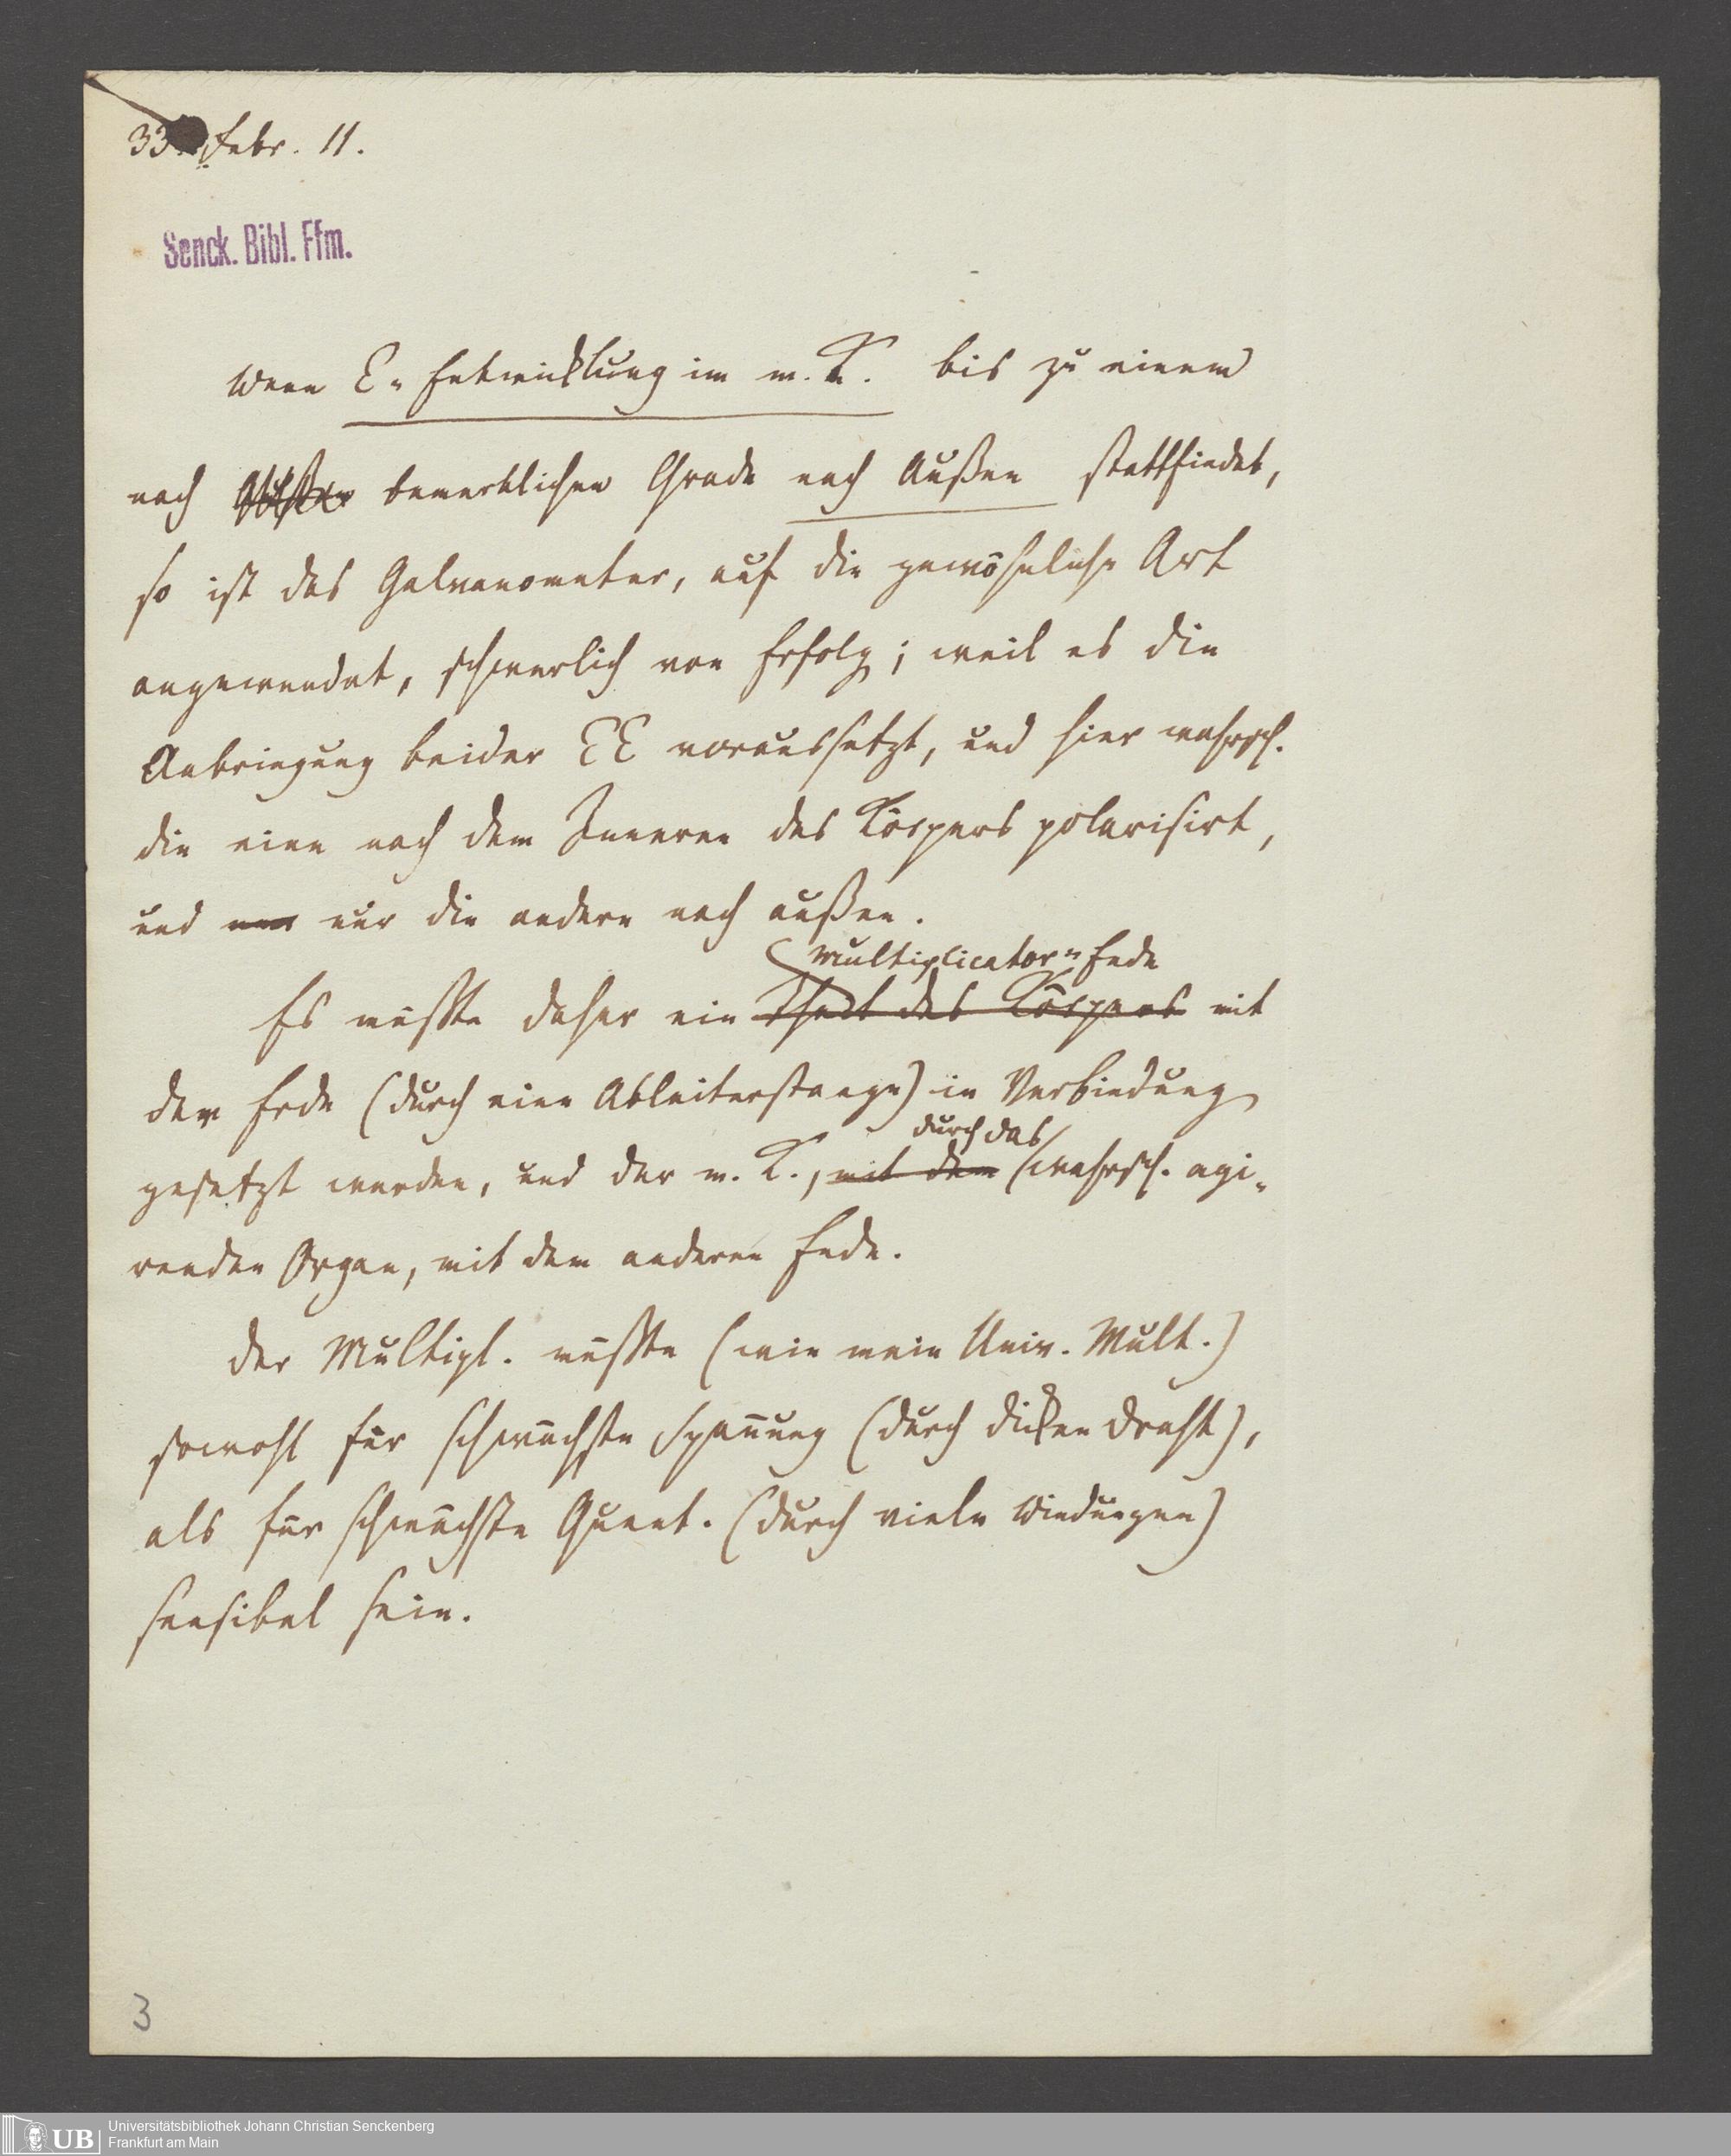 33. Febr. 11.
Senck. Bibl. Ffm.
Wenn E-Entwicklung im m. K. bis zu einem
noch bemerklichen Grade nach Außen stattfindet,
so ist das Galvanometer, auf die gewöhnliche Art
angewendet, schwerlich von Erfolg; weil es die
Anbringung beider EE voraussetzt, und hier wahrsch.
die eine nach dem Inneren des Körpers polarisirt,
und nur nur die andere nach außen.
Multiplicator-Ende
Es müßte daher ein Theil des Körpers mit
der Erde (durch eine Ableiterstange) in Verbindung
durch das
gesetzt werden, und der m. K., mit dem (wahrsch. agi-
renden Organ, mit dem anderen Ende.
Der Multipl. müßte (wie mein Univ. Mult.)
sowohl für schwächste Spannung (durch dicken Draht),
als für schwächste Quant. (durch viele Windungen)
sensibel sein.
3
UB Universitätsbibliothek Johann Christian Senckenberg
Frankfurt am Main